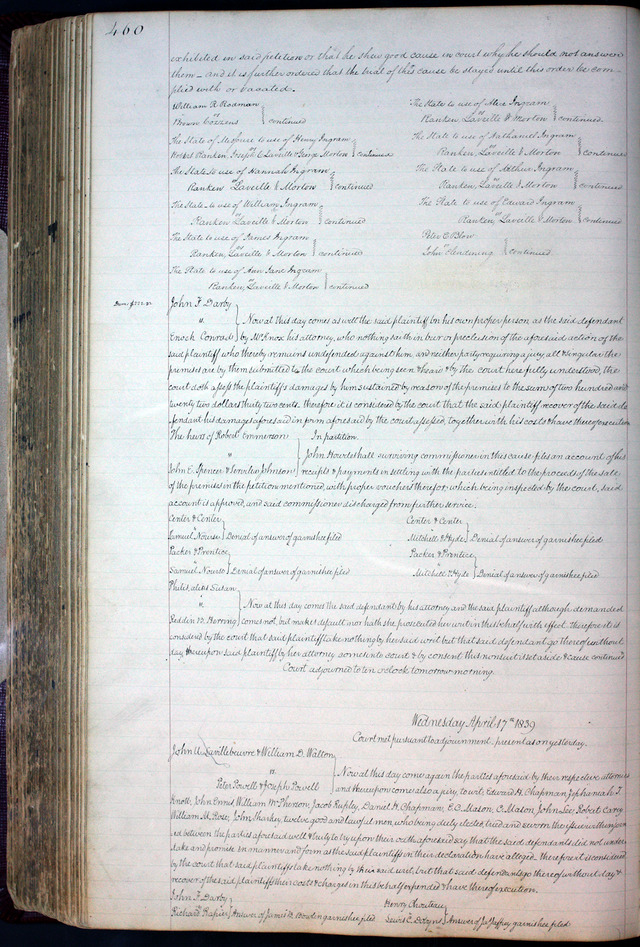 460
exhibited in said petition or that he shew good cause in court why he should not answer
them – and it is further ordered that the trial of this cause be stayed until this order be com-
plied with or vacated.
William R Rodman
vs
Brown Cozzens } continued
The State of Missouri to use of Henry Ingram
vs
Robert Ranken, Joseph C Laveille George Morton } continued
The State to use of Hannah Ingram
vs
Ranken Laveille & Morton } continued
The State to use of William Ingram
vs
Ranken Laveille & Morton } continued
The State to use of James Ingram
vs
Ranken, Laveille & Morton } continued
The State to use of Ann Jane Ingram
vs
Ranken, Laveille & Morton } continued
The State to use of Alex Ingram
vs
Ranken, Laveille & Morton } continued
The State to use of Nathaniel Ingram
vs
Ranken, Laveille & Morton } continued
The State to use of Arthur Ingram
vs
Ranken, Laveille & Morton } continued
The State to use of Edward Ingram
vs
Ranken, Laveille & Morton } continued
Peter E Blow
vs
John continued
John F Darby
vs
Enoch Conrade } Now at this day comes as well the said plaintiff in his own proper person as the said defendant
by his attorney, who nothing saith in bar or preclusion of the aforesaid action of the
said plaintiff who thereby remains undefended against him, and neither party requiring a jury all & singular the
premises are by them submitted to the court which being seen & heard & by the court here fully understood, the
court doth assess the plaintiffs damages by him sustained by reason of the premises to the sum of two hundred and
twenty two dollars thirty two cents. therefore it is considered by the court that the said plaintiff recover of the said de
fendant his damages aforesaid in form aforesaid by the court assessed, together with his costs & have thereof execution
The heirs of Robert Emmerson In partition.
vs
John C. Spencer & Johnson } John surviving commissioner in this cause files an account of his
receipts & payments in settling with the parties entitled to the proceeds of the sale
of the premises in the petition mentioned, with proper vouchers therefor, which being inspected by the court, said
account is approved, and said commissioner discharged from further service.
Center & Center
vs
Samuel Nourse } Denial of answer of garnishee filed
Packer & Prentice
vs
Samuel Nourse } Denial of answer of garnishee filed
Center & Center
vs
Mitchell & Hyde } Denial of answer of garnishee filed
Packer & Prentice
vs
Mitchell & Hyde } Denial of answer of garnishee filed
Philis, alias Susan
vs
Reddin B. Herring } Now at this day comes the said defendant by his attorney and the said plaintiff although demanded
comes not, but makes default nor hath she prosecuted her writ in this behalf with effect. therefore it is
considered by the court that said plaintiff take nothing by her said writ but that said defendant go thereof without
day, & thereupon said plaintiff by her attorney comes into court & by consent this nonsuit is set aside & cause continued
Court adjourned to ten oclock tomorrow morning.
Wednesday April 17th 1839
Court met pursuant to adjournment. present as on yesterday.
John & William D. Walton
vs
Peter Powell & Joseph Powell } Now at this day come again the parties aforesaid by their respective attornies
and thereupon comes also a jury, to wit, Edward H. Chapman, Zephaniah T.
Knott, John Ennis, William McPherson, Jacob Daniel H. Chapman, E.C. Mason, C. Mason, John Lee, Robert Carey
William M. Rose, John Sharkey, twelve good and lawful men, who being duly elected, tried and sworn the issue within join
ed between the parties aforesaid well & truly to try upon their oath aforesaid say that the said defendants did not under
take and promise in manner and form as the said plaintiffs in their declaration have alleged. therefore it is considered
by the court that said plaintiffs take nothing by this said writ, but that said defendants go thereof without day &
recover of the said plaintiffs their costs & charges in this behalf expended & have thereof execution.
John F Darby
vs
Richard Rapier } Answer of James M. Bowlin garnishee filed
Henry Chouteau
vs
Lewis C. } Answer of garnishee filed